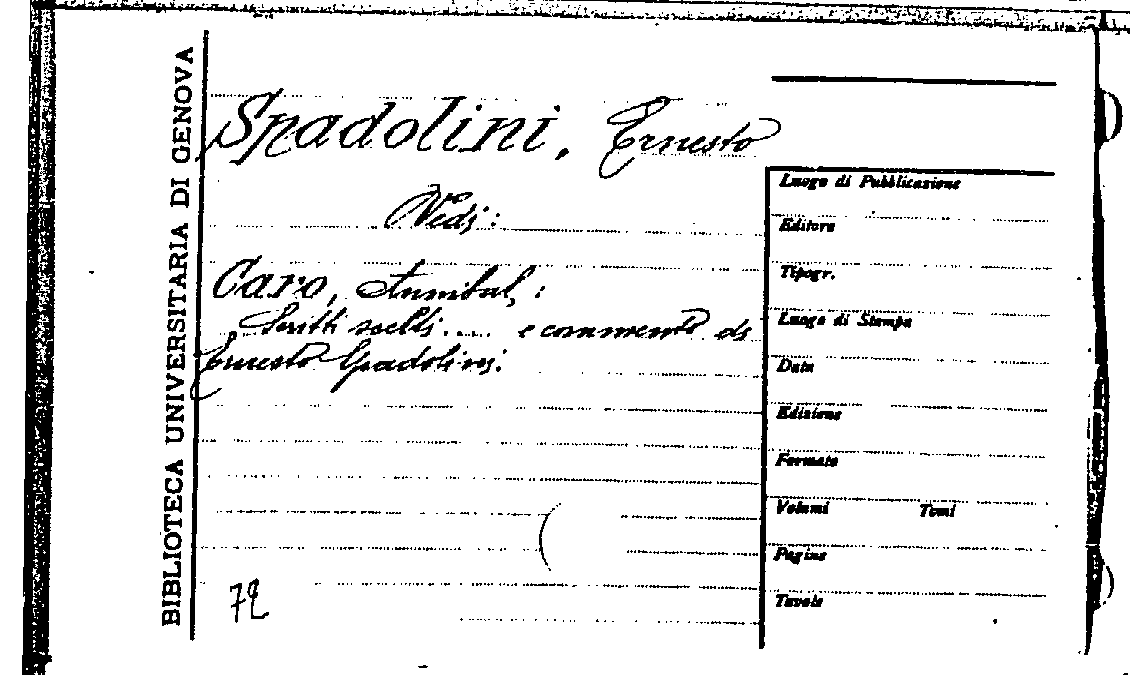 BIBLIOTECA UNIVERSITARIA DI GENOVA
Spadolini, Ernesto
Vedi:
Caro, Annibal,:
Scritti scelti .... e commento di
Ernesto Spadolini.
72
Luogo di Pubblicazione
Editore
Tipogr.
Luogo di Stampa
Data
Edizione
Formato
Volumi Tomi
Pagine
Tavole